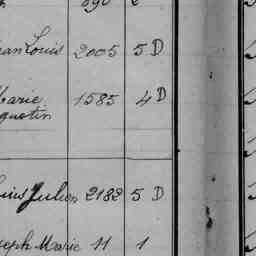 ean Louis 2005 5 D
Marie 1585 4 D
gustin
Julien 2182 5 D
seph Marie 11 1